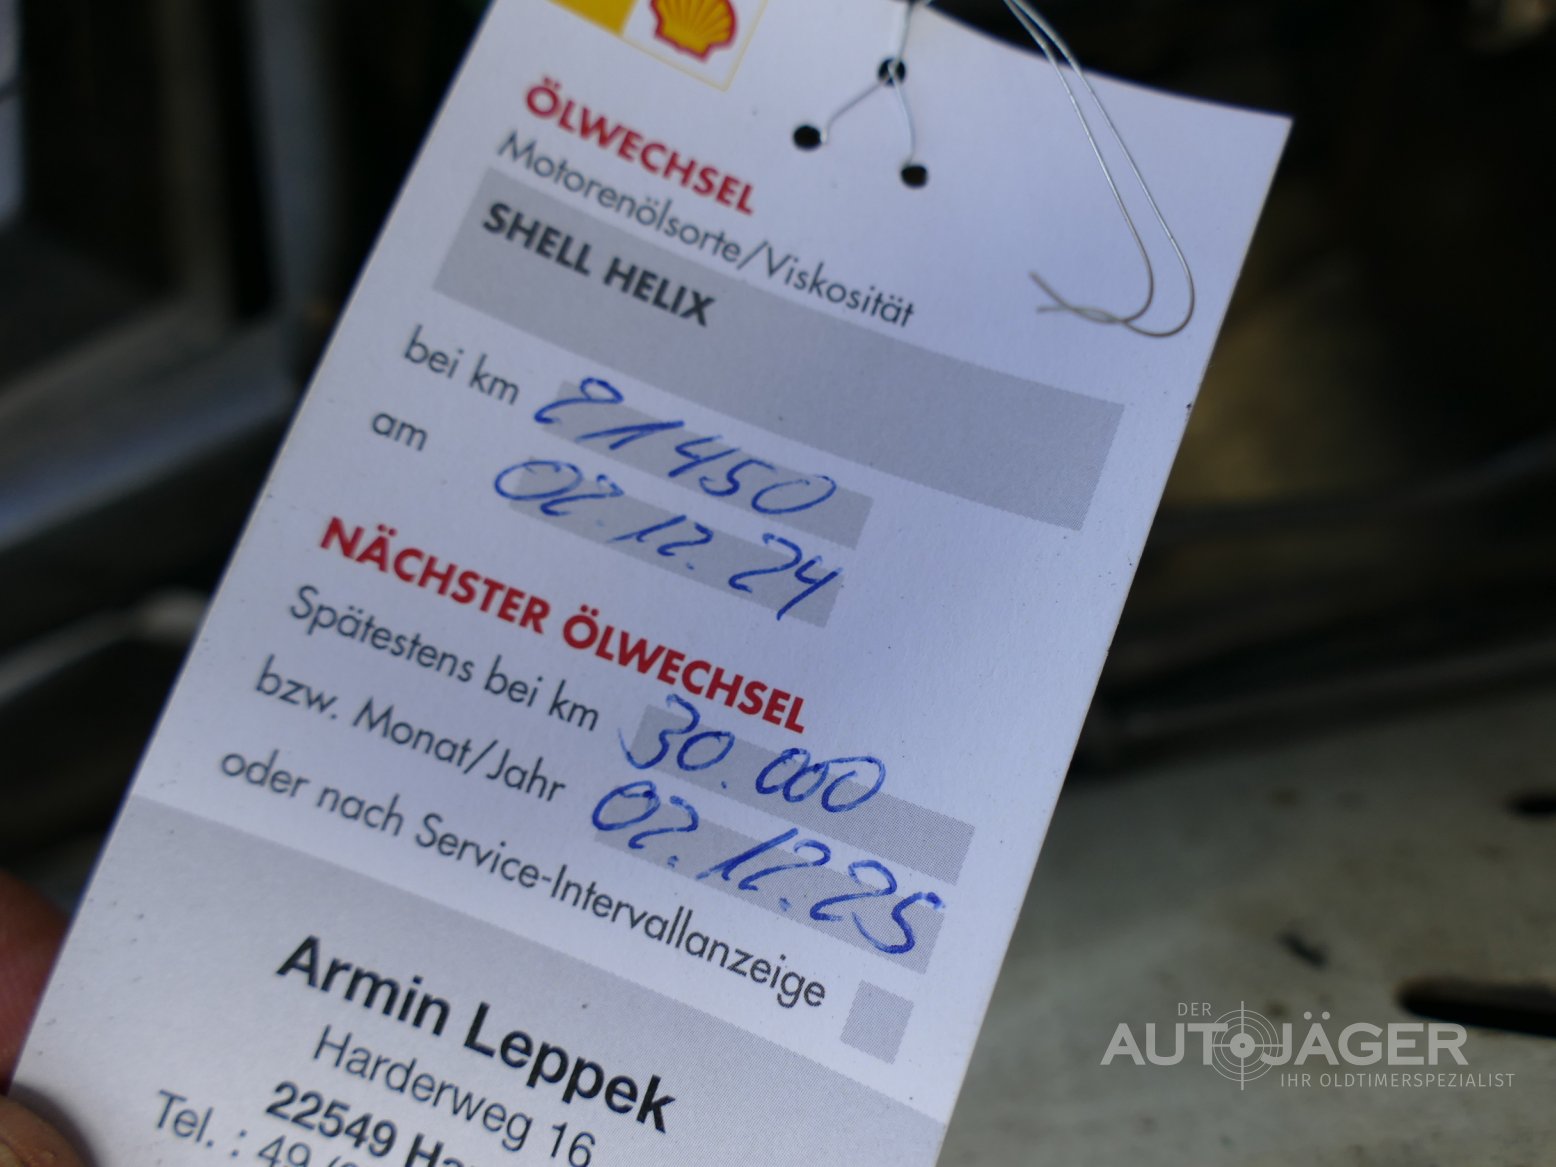 ÖLWECHSEL
Motorenölsorte/Viskosität
SHELL HELIX
bei km 21450
am 02.12.24
NÄCHSTER ÖLWECHSEL
Spätestens bei km 30.000
bzw. Monat/Jahr 02.12.25
oder nach Service-Intervallanzeige
Armin Leppek
Harderweg 16
22549
Tel. : 49
DER
AUTOJÄGER
IHR OLDTIMERSPEZIALIST